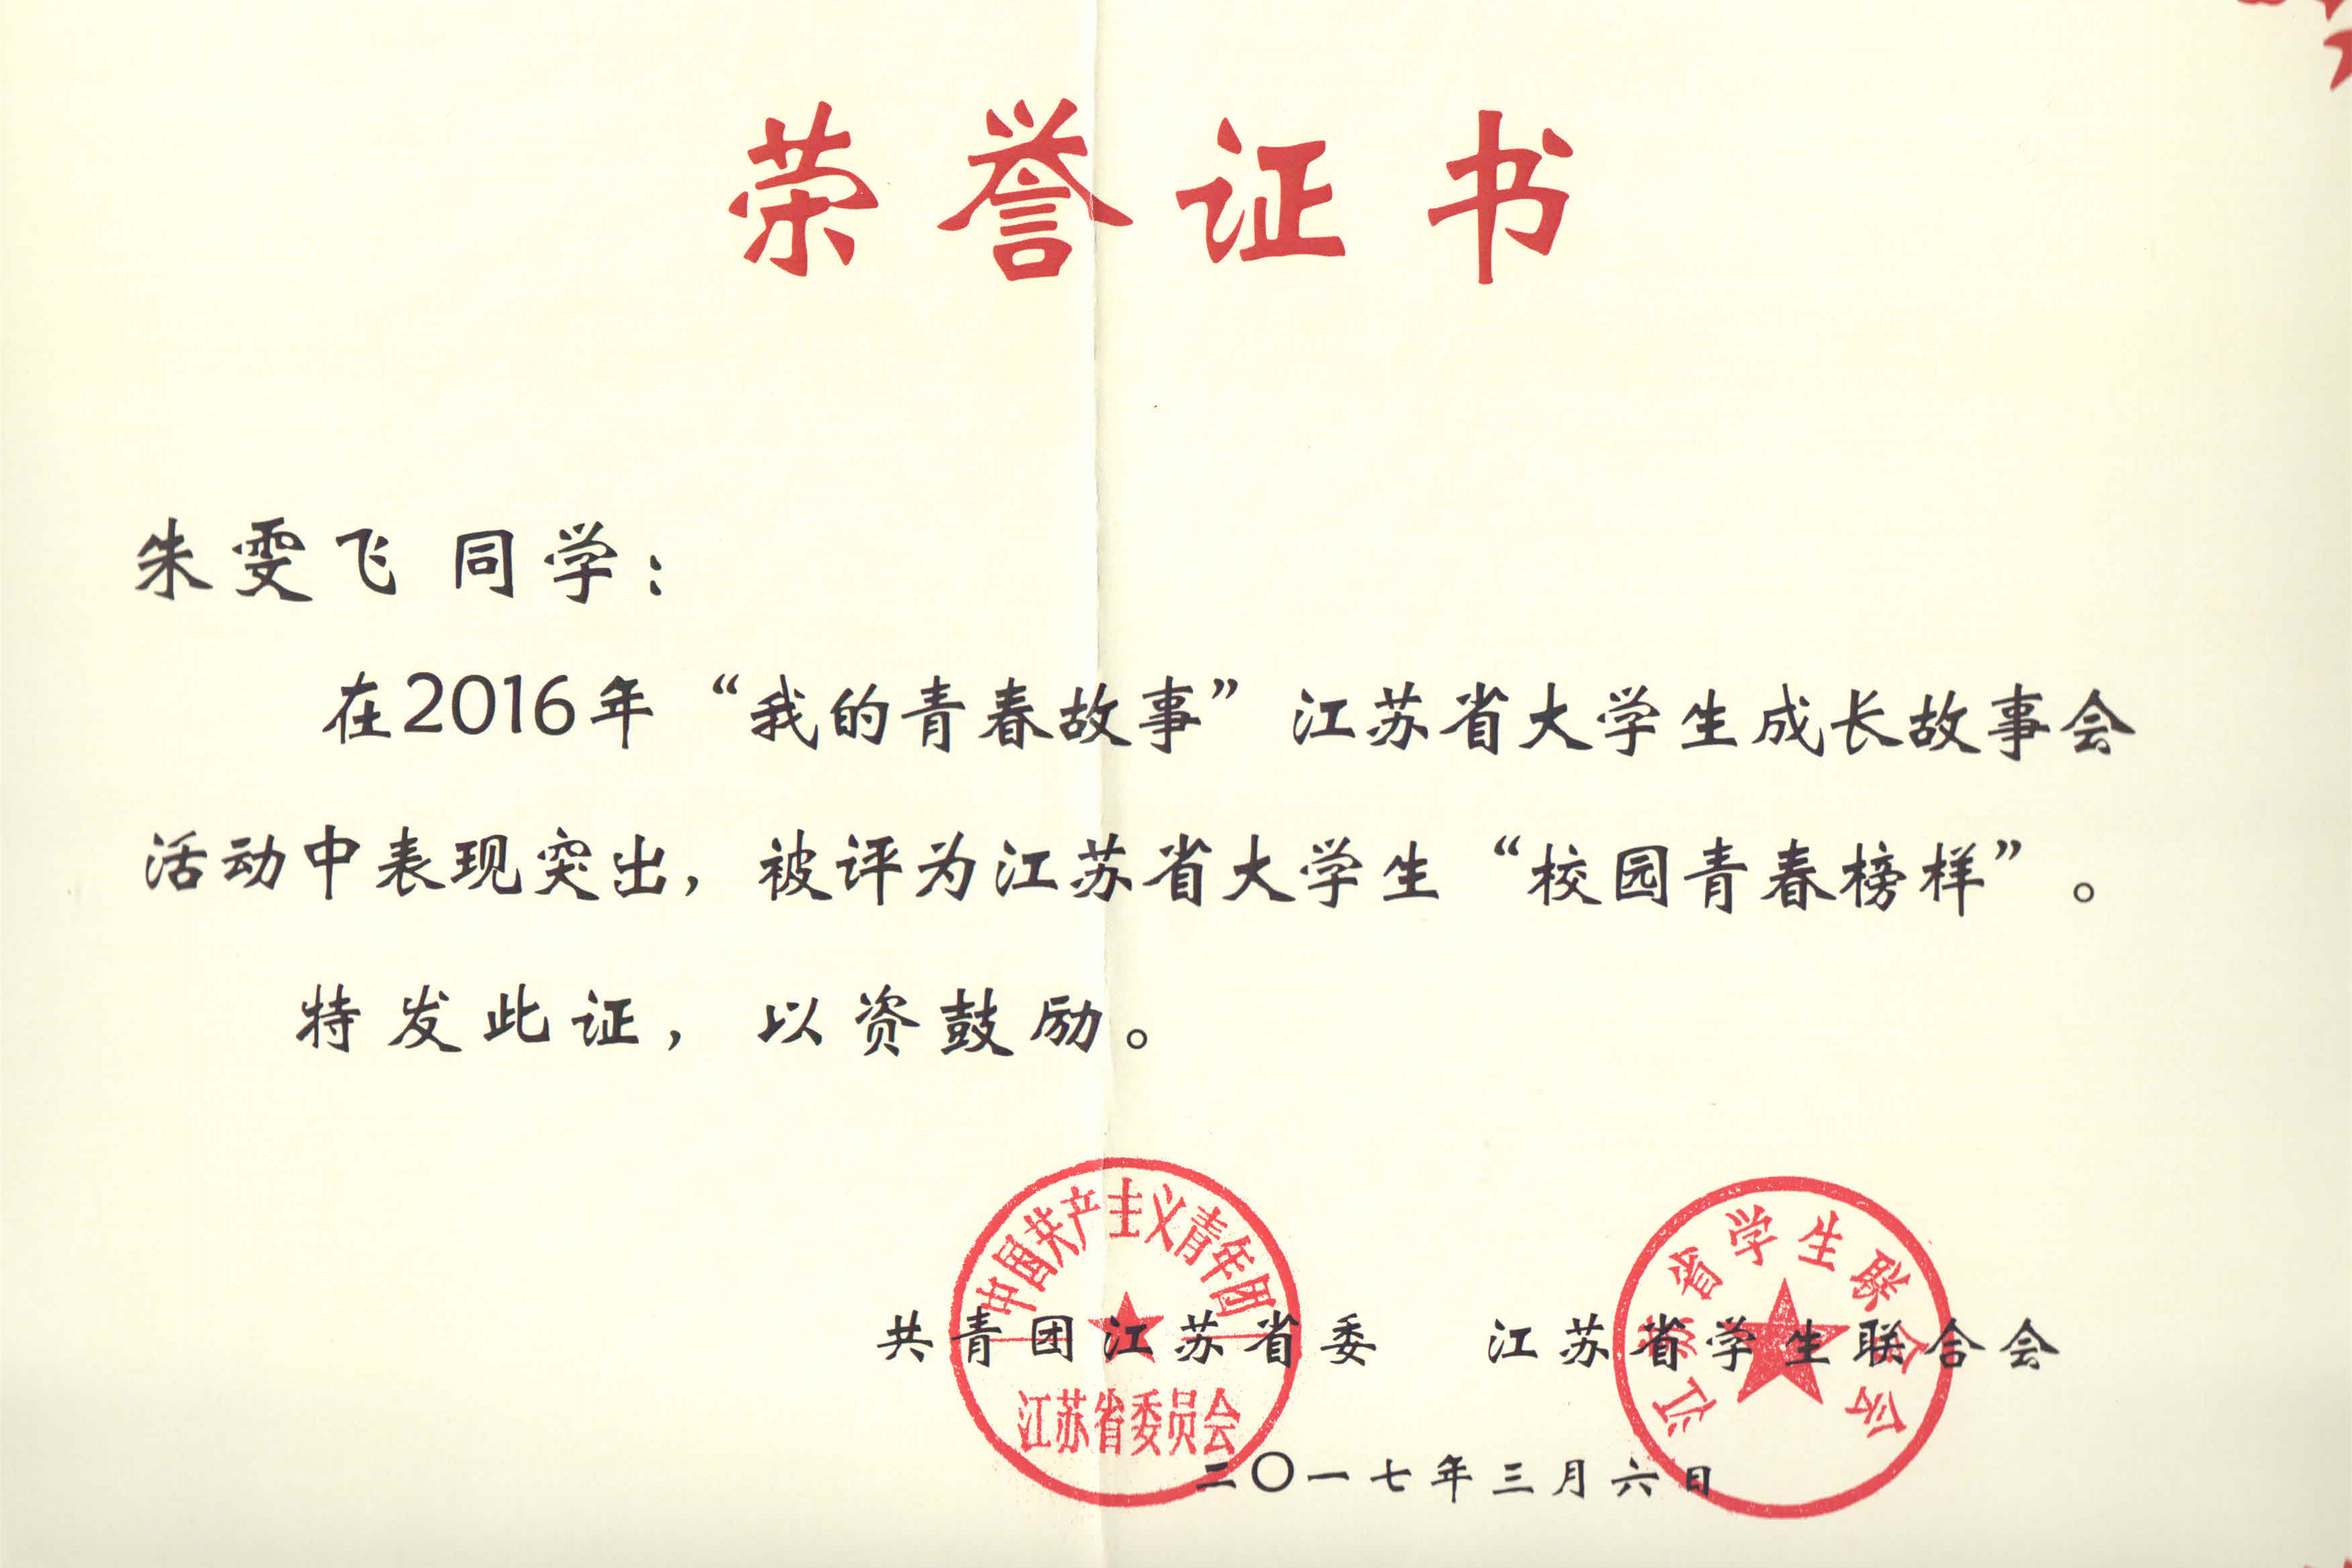 荣誉证书
朱雯飞 同学：
在2016年“我的青春故事”江苏省大学生成长故事会
活动中表现突出，被评为江苏省大学生“校园青春榜样”。
特发此证，以资鼓励。
中国共产主义青年团
江苏省学生联合会
共青团江苏省委 江苏省学生联合会
江苏省委员会
二〇一七年三月六日